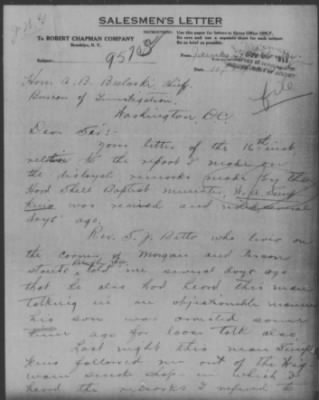 SALESMEN'S LETTER
To ROBERT CHAPMAN COMPANY
Brooklyn, N. Y.
INSTRUCTIONS: Use this paper for letters to Home Office ONLY.
Do not and use a separate sheet for each subject.
Be as brief as possible.
Subject
From
Date
Hon. A. B. Bielaski, Chief,
Bureau of Investigation,
Washington DC
Dear Sir:-
Your letter of the 16th inst
relative to the report I made on
the disloyal remarks made by the
Hard Shell Baptist minister,
was received and several
days ago.
Rev. T. J. Betts who lives on
the corner of Morgan and
streets, told me several days ago
that he also had heard this man
talking in an objectionable manner
his son was arrested some
time ago for loose talk also.
Last night this man
followed me out of the
smoke shop in which I
heard the remarks I referred to